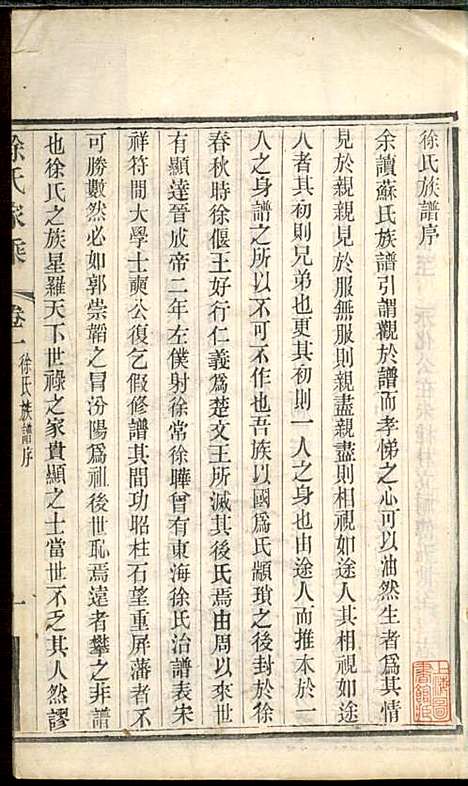 徐氏族譜序
余讀蘇氏族譜引謂觀於譜而孝悌之心可以油然生者爲其情
見於親親見於服無服則親盡親盡則相視如途人相視如途
人者其初則兄弟也更其初則一人之身也由途人而推本於一
人之身譜之所以不可不作也吾族以國爲氏顓頊之後封於徐
春秋時徐偃王好行仁義爲楚文王所滅其後氏焉由周以來世
有顯達晉成帝二年左僕射徐常徐曄曾有東海徐氏治譜表宋
祥符間大學士奭公復乞假修譜其間功昭柱石望重屏藩者不
可勝數然必如郭崇韜之冒汾陽爲祖後世恥焉遠者攀之非譜
也徐氏之族星羅天下世祿之家貴顯之士當世不乏其人然謬
徐氏家乘
卷一
徐氏族譜序
一
上海圖
書館藏